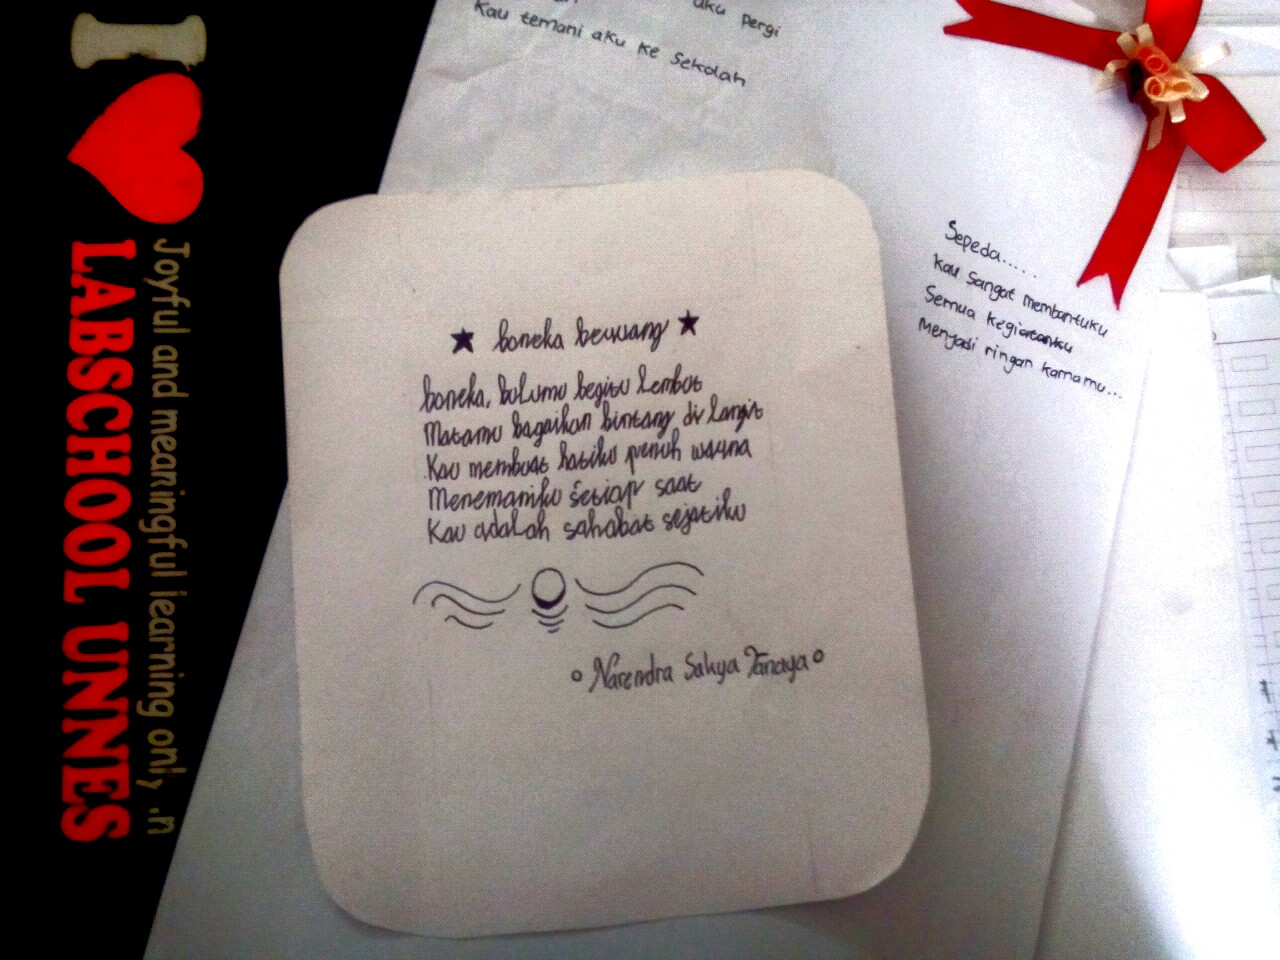 I
LABSCHOOL UNNES
Joyful and meaningful learning on
aku pergi
kau temani aku ke sekolah
Sepeda.....
kau sangat membantuku
Semua kegiatanku
Menjadi ringan karnamu...
★ boneka beruang ★
boneka, bulumu begitu lembut
Matamu bagaikan bintang di langit
Kau membuat hatiku penuh warna
Menemaniku setiap saat
Kau adalah sahabat sejatiku
Narendra Sakya Tanaya